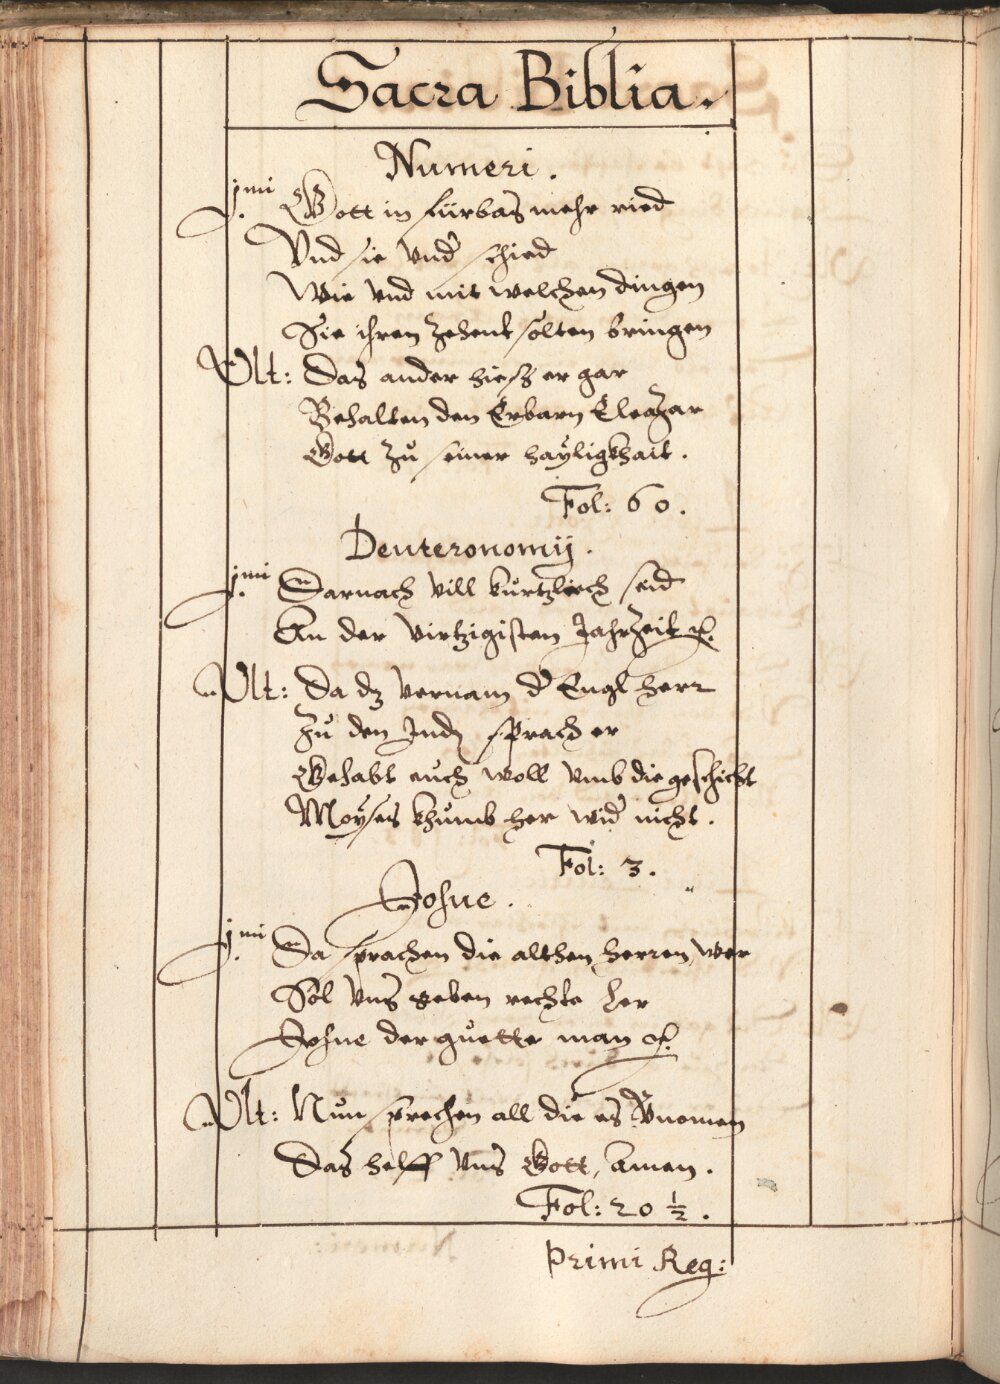 Sacra Biblia.
Numeri.
jmi Gott in fürbas mehr ried
Vnd sie vnd' schied
Wie vnd mit welchen dingen
Sie ihren zehent solten bringen
Vlt: Das ander hiesz er gar
Behalten den Erbarn Eleazar
Gott zů seiner haÿligkhait.
Fol: 60.
Deuteronomij.
jmi Darnach vill kůrtzlich seid
An der virtzigisten Jahrzeit etc.
Vlt: Da dz vernam d' Engl herr
Zů den Jud sprach er
Gehabt eůch woll vmb die geschicht
Moÿses khůmb her wid' nicht.
Fol: 3.
Josue.
jmi Da sprachen die althen herren, wer
Sol vns geben rechte ler
Josue der gůette man etc.
Vlt: Nůn sprechen all die es vnomen
Das helff vns Gott, Amen.
Fol: 20 ½.
Primi Reg: